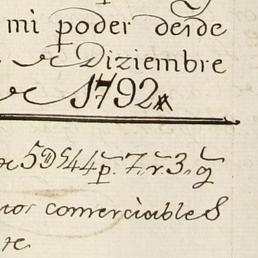 mi poder desde
de Diziembre
de 1792
de 5D.s 44p.s 7.r.s 3. q
comerciables
re